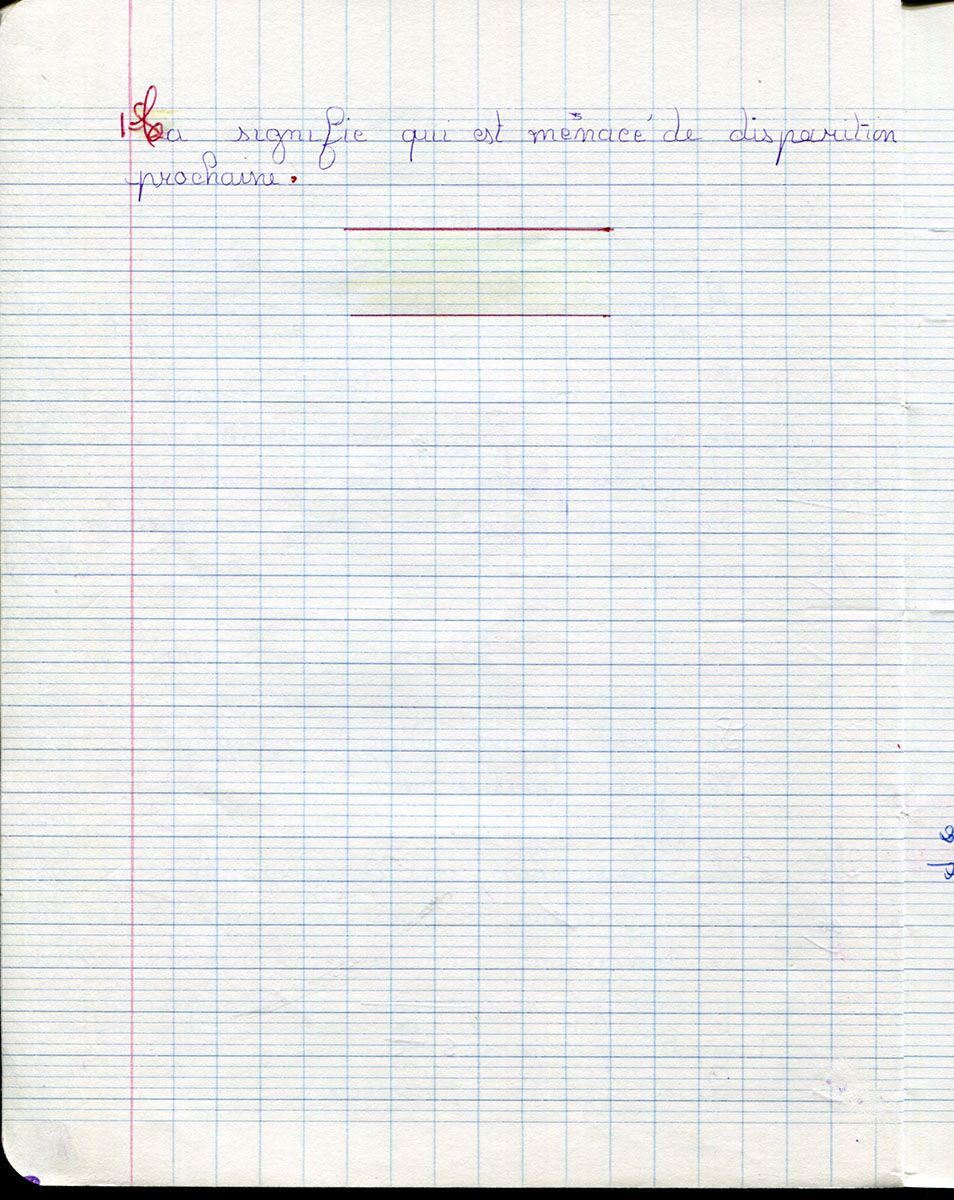 Ça signifie qui est menacé de disparution
prochaine.